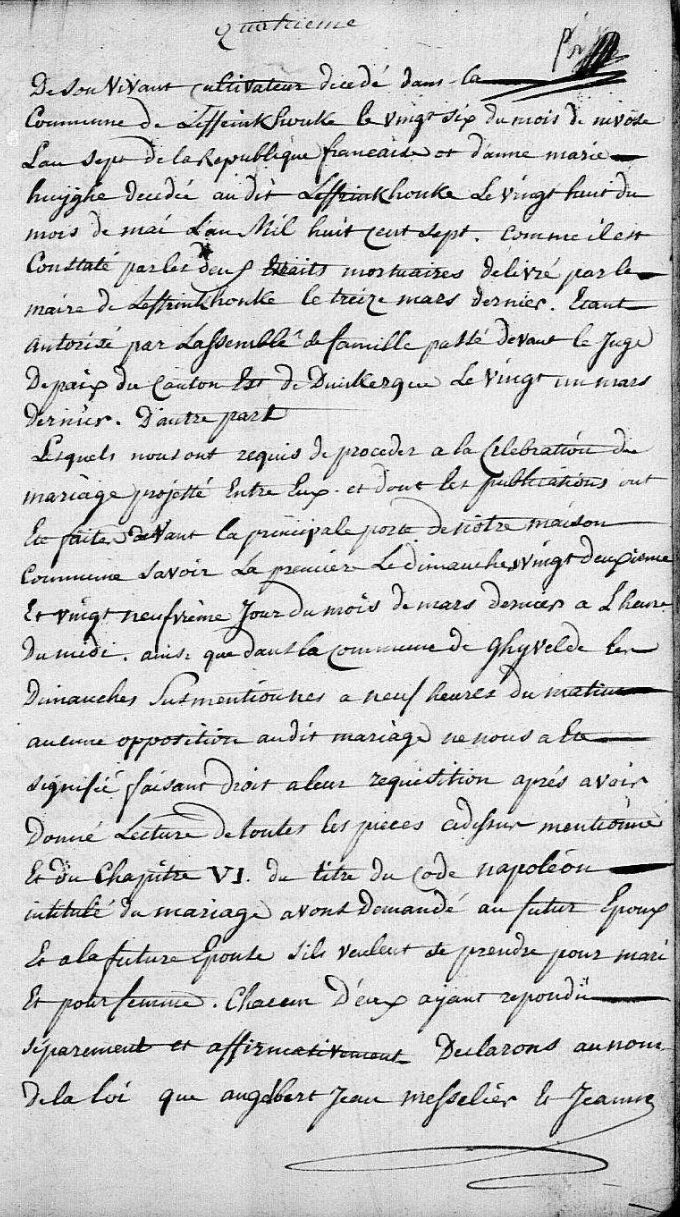 quatrieme
De son vivant cultivateur decedé dans la
Commune de Leffrinkhouke le vingt six du mois de nivose
L'an sept de la Republique francaise et d'anne marie
huijghe decedée au dit Leffrinkhouke Le vingt huit du
mois de mai L'an Mil huit cent sept. comme il est
Constaté par les deux Extraits mortuaires delivré par le
maire de Leffrinkhouke le treize mars dernier. Etant
autorisé par L'assemblé de famille passé devant le Juge
De paix du Canton Est de Dunkerque Le vingt un mars
dernier. D'autre part
Lesquels nous ont requis de proceder a la Celebration du
mariage projetté Entre Eux. et dont les publications ont
Ete faites devant la principale porte de notre maison
Commune savoir La premiere Le dimanche vingt deuxieme
Et vingt neufvième Jour du mois de mars dernier a L'heure
Du midi. ainsi que dans la commune de Ghyvelde les
Dimanches susmentionnes a neuf heures du matin
aucune opposition audit mariage ne nous a Ete
signifié faisant droit a leur requisition aprés avoir
Donné Lecture de toutes les pieces cidessus mentionné
Et du Chapitre VI. du titre du Code napoléon
intitulé du mariage avons Demandé au futur Epoux
Et a la future Epouse s'ils veulent se prendre pour mari
Et pour femme. Chacun D'eux ayant repondu
séparement et affirmativement Declarons au nom
De la loi que angelbert Jean messelier Et Jeanne